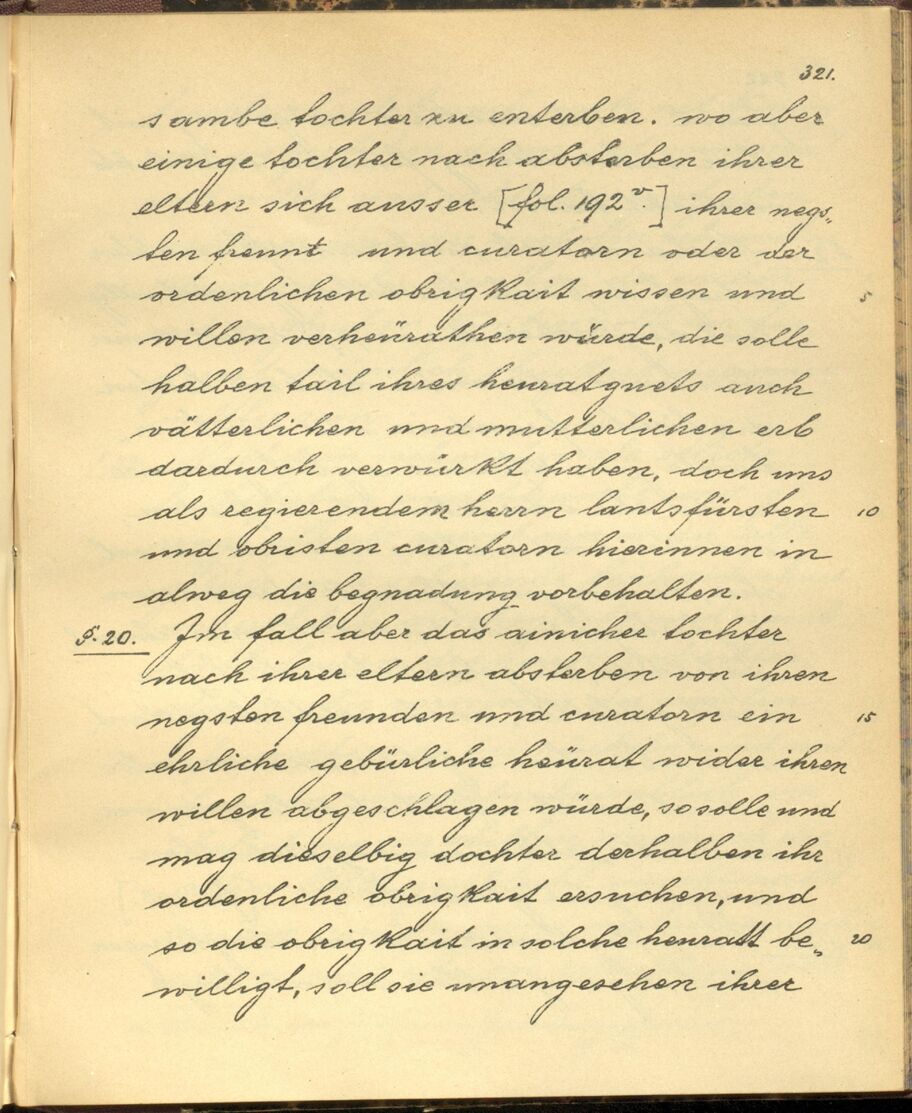 321.
sambe tochter zu enterben. wo aber
einige tochter nach absterben ihrer
eltern sich ausser [fol. 192v.] ihrer negs„
ten freunt und curatorn oder der
ordenlichen obrigkait wissen und 5
willen verheürathen würde, die solle
halben tail ihres heuratguets auch
vätterlichen und mutterlichen erb
dardurch verwürkt haben, doch uns
als regierendem herrn lantsfürsten 10
und obristen curatorn hierinnen in
alweg die begnadung vorbehalten.
§. 20. Im fall aber das ainicher tochter
nach ihrer eltern absterben von ihren
negsten freunden und curatorn ein 15
ehrliche gebürliche heürat wider ihren
willen abgeschlagen würde, so solle und
mag dieselbig dochter derhalben ihr
ordenliche obrigkait ersuchen, und
so die obrigkait in solche heuratt be„ 20
willigt, soll sie unangesehen ihrer